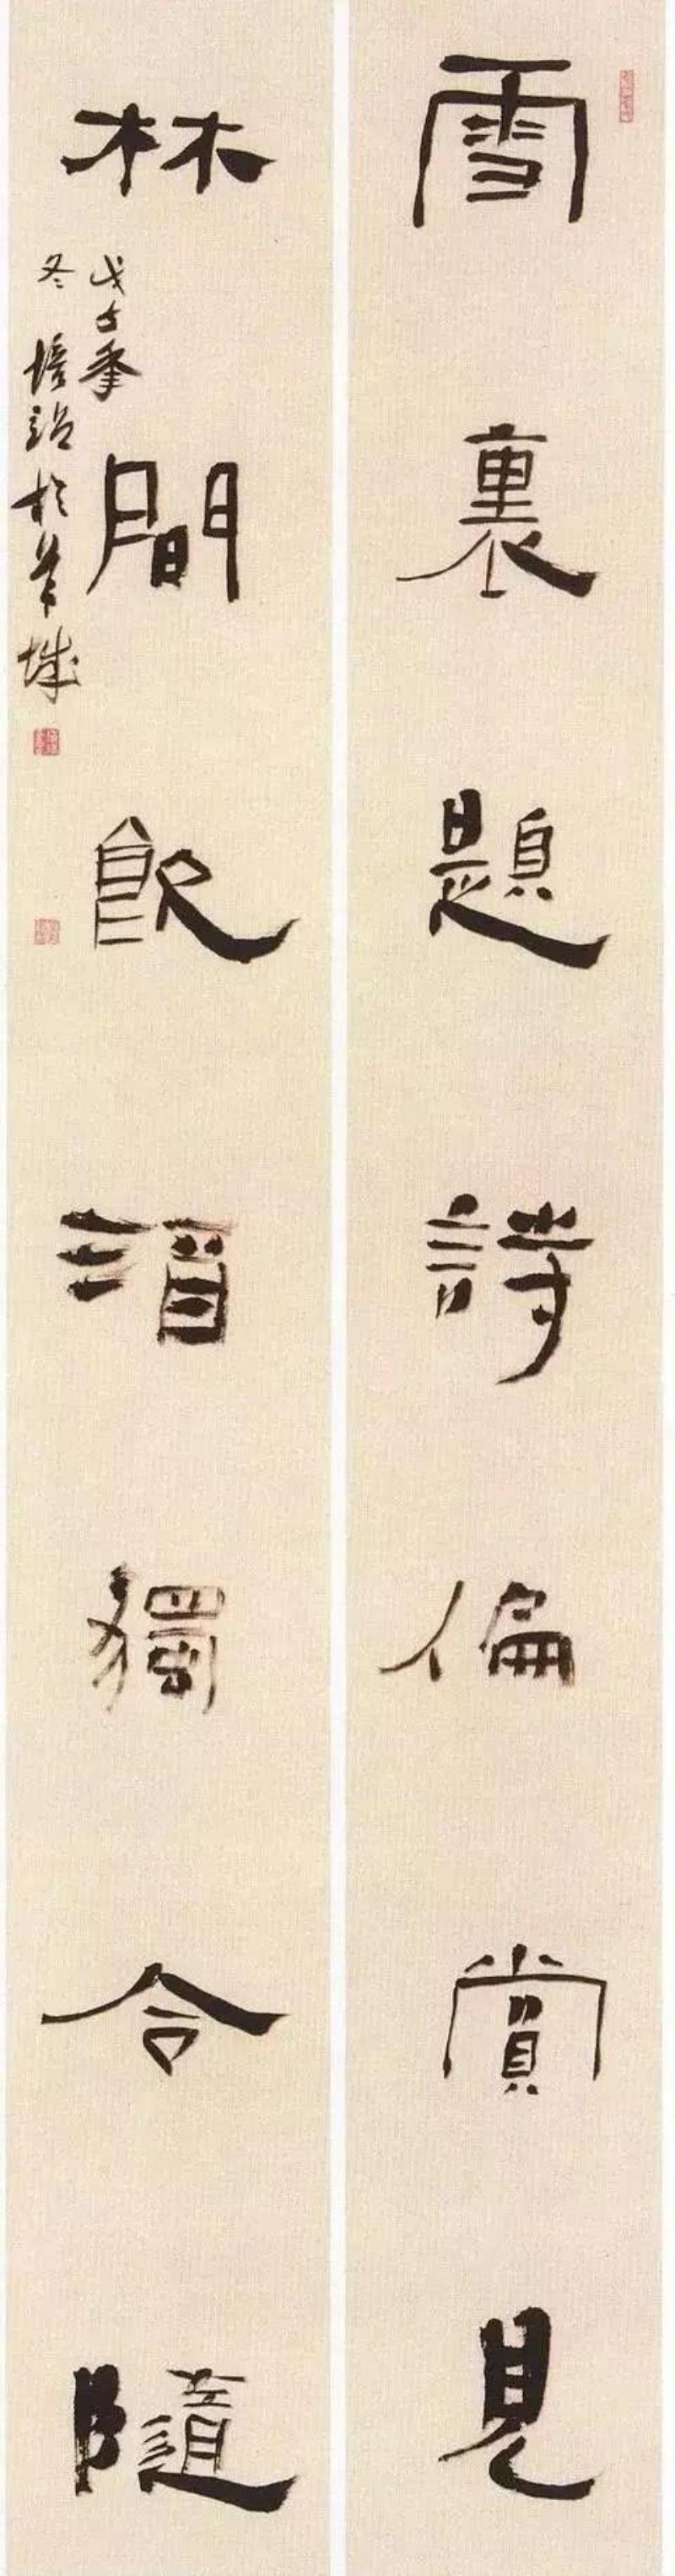 雪裏題詩偏賞見
林間飲酒獨令隨
戊子季
冬 培於羊城